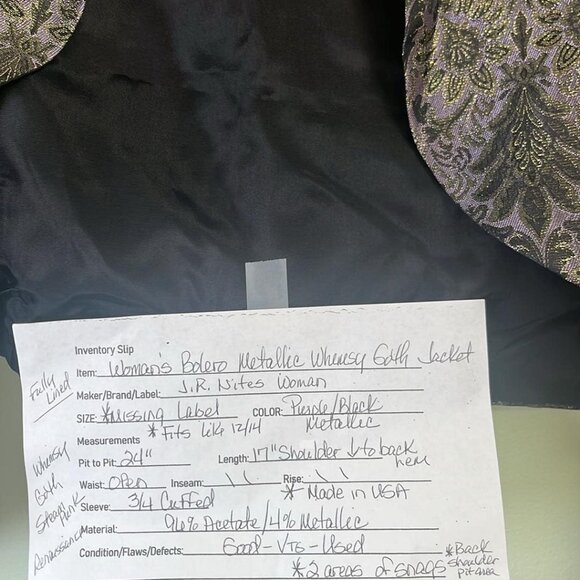 Inventory Slip
Item: Woman's Bolero Metallic Whimsy Goth Jacket
Maker/Brand/Label: J.R. Nites Woman
SIZE: *Missing Label COLOR: Purple/Black Metallic
Measurements *Fits like 12/14
Pit to Pit: 24" Length: 17" Shoulder to back hem
Waist: Open Inseam: \ \ Rise: \ \
Sleeve: 3/4 Cuffed * Made in USA
Material: 96% Acetate/4% Metallic
Condition/Flaws/Defects: Good-VTG-Used
*2 areas of snags
*Back shoulder pit area
Fully Lined
Whimsy
Goth
Steam Punk
Renaissance